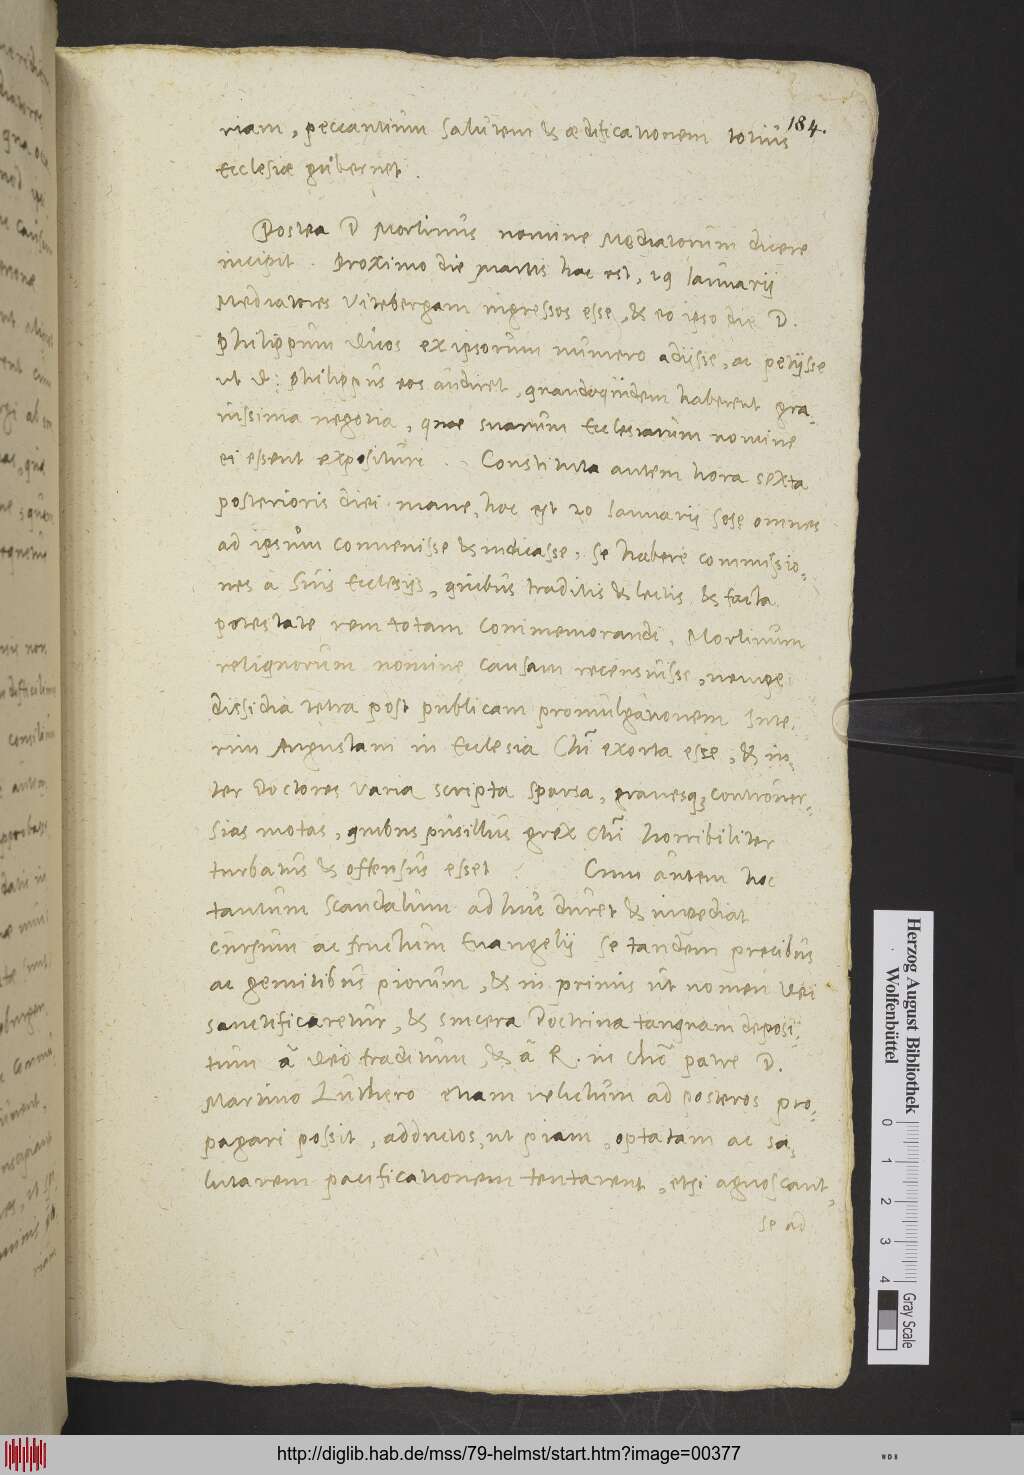 184.
riam, peccantium salutem & ædificationem totius
Ecclesiæ gubernet.
Postea D Morlinus nomine Mediatorum dicere
incipit. Proximo die Martis hac est, 19 Ianuarij
Mediatores Vitebergam ingressos esse, & eo ipso die D.
Philippum duos ex ipsorum numero adijsse, ac petijsse
ut D: Philippus eos audiret, quandoquidem haberent gra,
uissima negotia, quae suarum Ecclesiarum nomine
ei essent exposituri. Constituta autem hora sexta
posterioris diei mane, hoc est 20 Ianuarij sese omnes
ad ipsum convenisse & indicasse, se habere commissio,
nes a suis Ecclesijs, quibus traditis & lectis & facta
potestate rem totam commemorandi, Morlinum
reliquorum nomine causam recensuisse, nempe
dissidia tetra post publicam promulgationem Inte,
rim Augustani in Ecclesia Chi exorta esse, & in,
ter Doctores varia scripta sparsa, gravesq; controver,
sias motas, quibus pusillus grex Chi horribiliter
turbatus & offensus esset. Cum autem hoc
tantum scandalum adhuc duret & impediat
cursum ac fructum Euangelij se tandem precibus
ac gemitibus piorum, & in primis ut nomen Dei
sanctificaretur, & sincera Doctrina tanquam deposi,
tum à Deo traditum, & à R. in Chō patre D.
Martino Luthero etiam relictum ad posteros pro,
pagari possit, adductos, ut piam, optatam ac sa,
lutarem pacificationem tentarent, etsi agnoscant,
se ad
Herzog August Bibliothek
Wolfenbüttel
0 1 2 3 4
Gray Scale
http://diglib.hab.de/mss/79-helmst/start.htm?image=00377